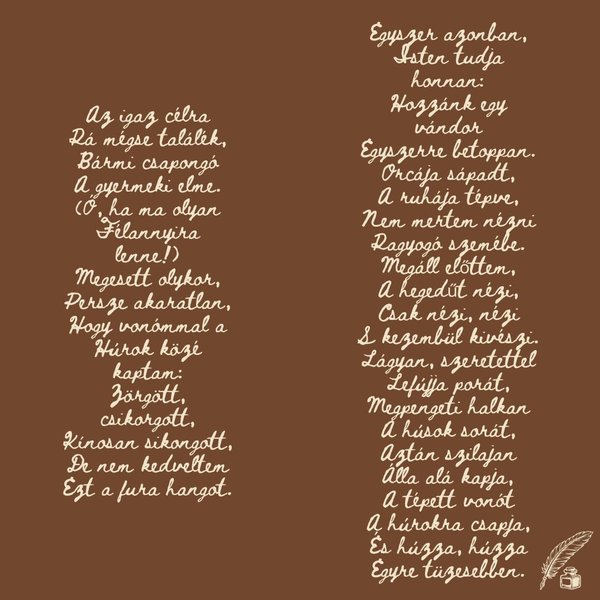 Az igaz célra
Rá mégse találék,
Bármi csapongó
A gyermeki elme.
(Ó, ha ma olyan
Félannyira
lenne!)
Megesett olykor,
Persze akaratlan,
Hogy vonómmal a
Húrok közé
kaptam:
Zörgött,
csikorgott,
Kínosan sikongott,
De nem kedveltem
Ezt a fura hangot.
Egyszer azonban,
Isten tudja
honnan:
Hozzánk egy
vándor
Egyszerre betoppan.
Orcája sápadt,
A ruhája tépve,
Nem mertem nézni
Ragyogó szemébe.
Megáll előttem,
A hegedűt nézi,
Csak nézi, nézi
S kezembül kivészi.
Lágyan, szeretettel
Lefújja porát,
Megpengeti halkan
A húsok sorát,
Aztán szilajan
Álla alá kapja,
A tépett vonót
A húrokra csapja,
És húzza, húzza
Egyre tüzesebben.